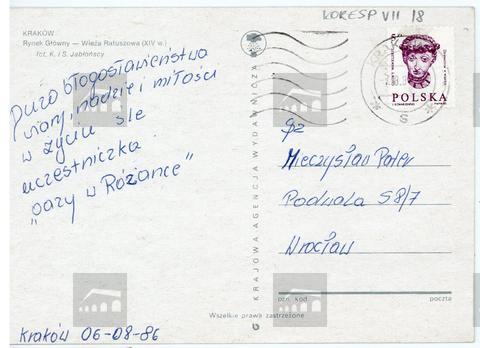 KORESP VII 18
KRAKÓW
Rynek Główny — Wieża Ratuszowa (XIV w.)
fot. K. i S. Jabłońscy
Dużo błogosławieństwa
wiary, nadziei i miłości
w życiu śle
uczestniczka
"oazy w Różance"
Kraków 06-08-86
KRAJOWA AGENCJA WYDAWNICZA
5
POLSKA
Mieczysław Pater
Podwala 58/7
Wrocław
pzn. kod
poczta
Wszelkie prawa zastrzeżone